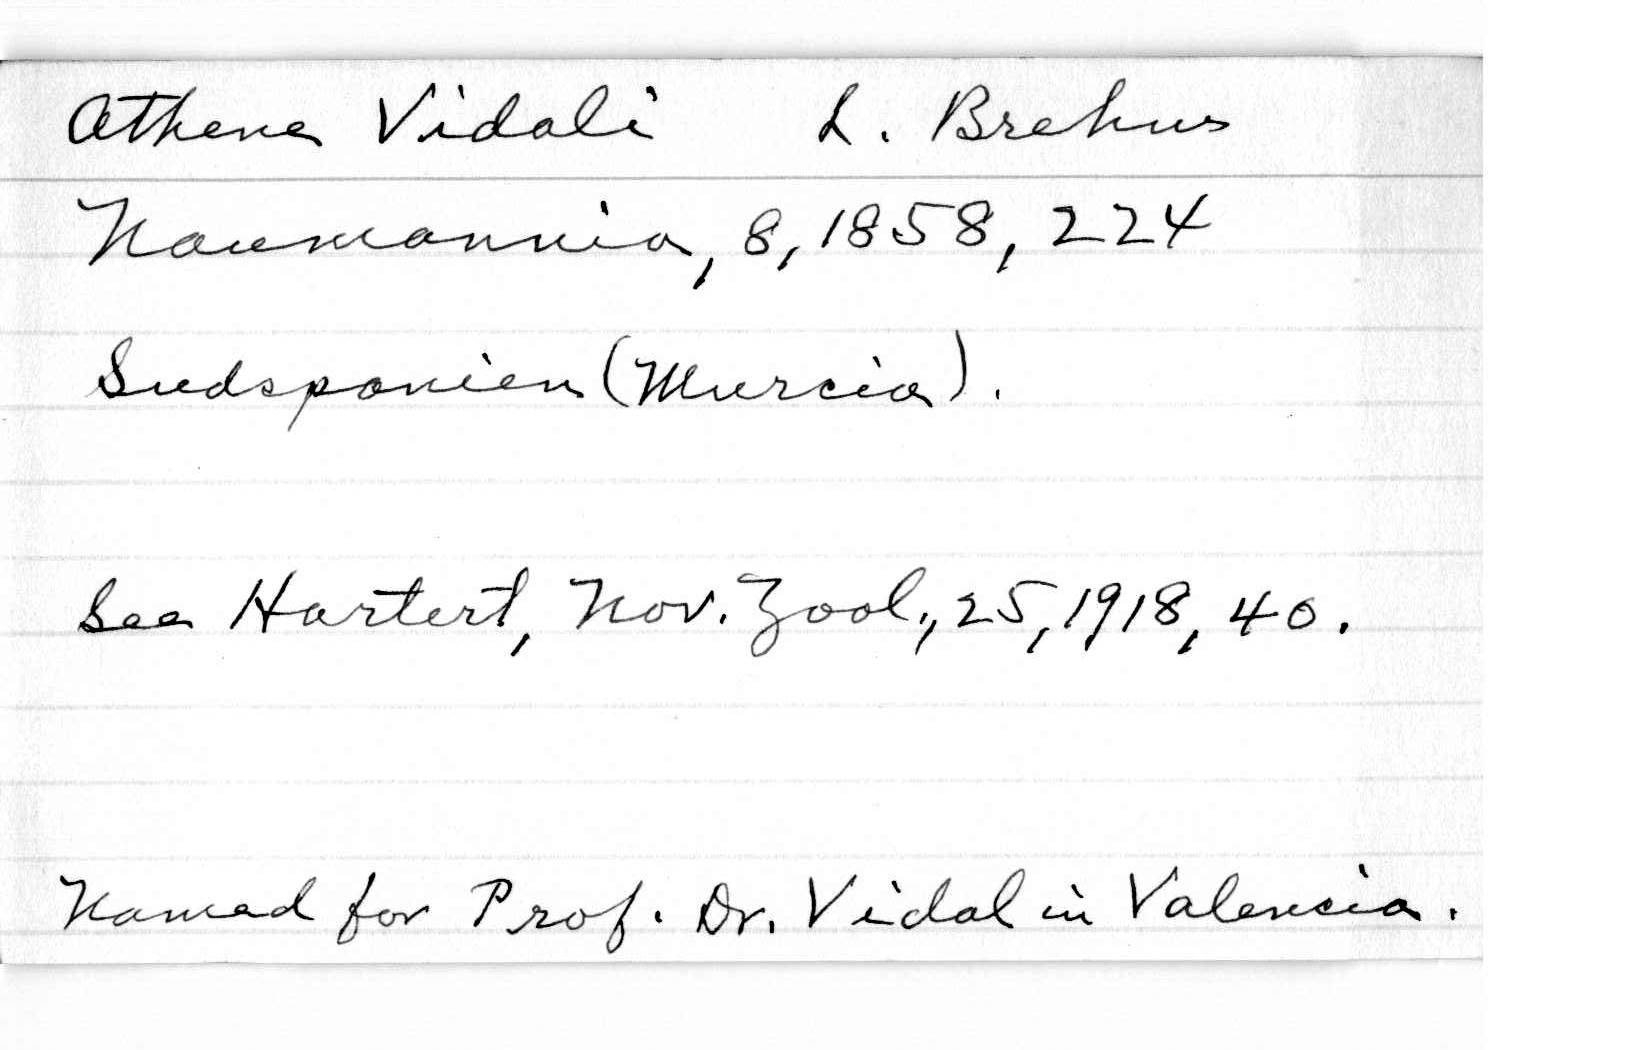 Athene Vidali L. Brehm
Naumannia, 8, 1858, 224
Sudspanien (Murcia).
See Hartert, Nov. Zool., 25, 1918, 40.
Named for Prof. Dr. Vidal in Valencia.